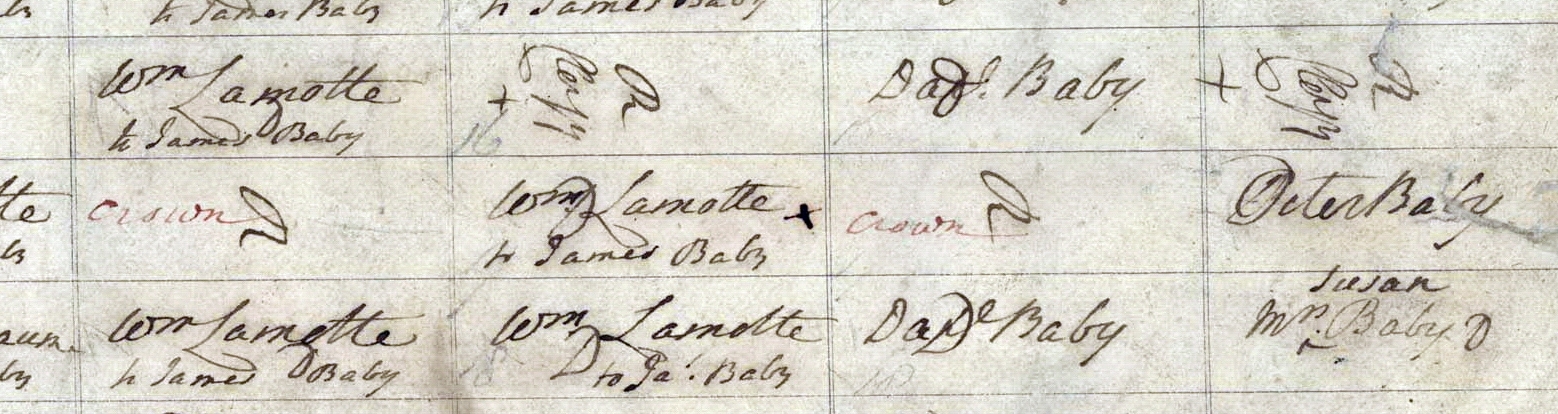 to James Baby
to James Baby
Wm Lamotte
to James Baby
D
Clergy
R
+
Danl. Baby
D
Clergy
R
+
Crown
R
Wm Lamotte
D
to James Baby
x
Crown
R
Peter Baby
D
Wm Lamotte
to James Baby
D
Wm Lamotte
D
to Ja.s Baby
Danl Baby
D
Susan
Mrs. Baby D